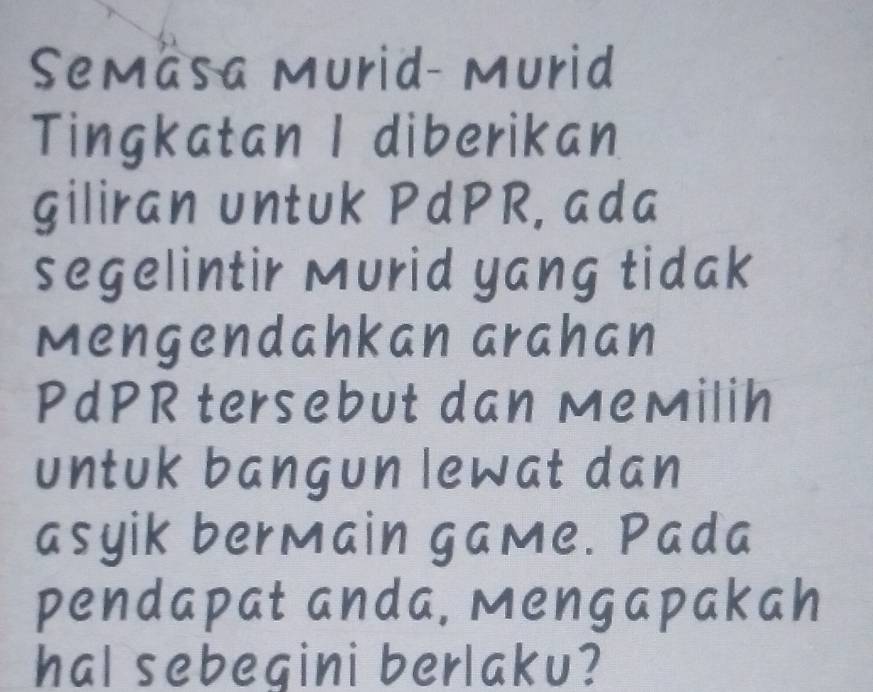 Semasa Murid- Murid
Tingkatan 1 diberikan
giliran untuk PdPR, ada
segelintir murid yang tidak
mengendahkan arahan
PdPR tersebut dan memilih
untuk bangun lewat dan
asyik bermain game. Pada
pendapat anda, mengapakah
hal sebegini berlaku?